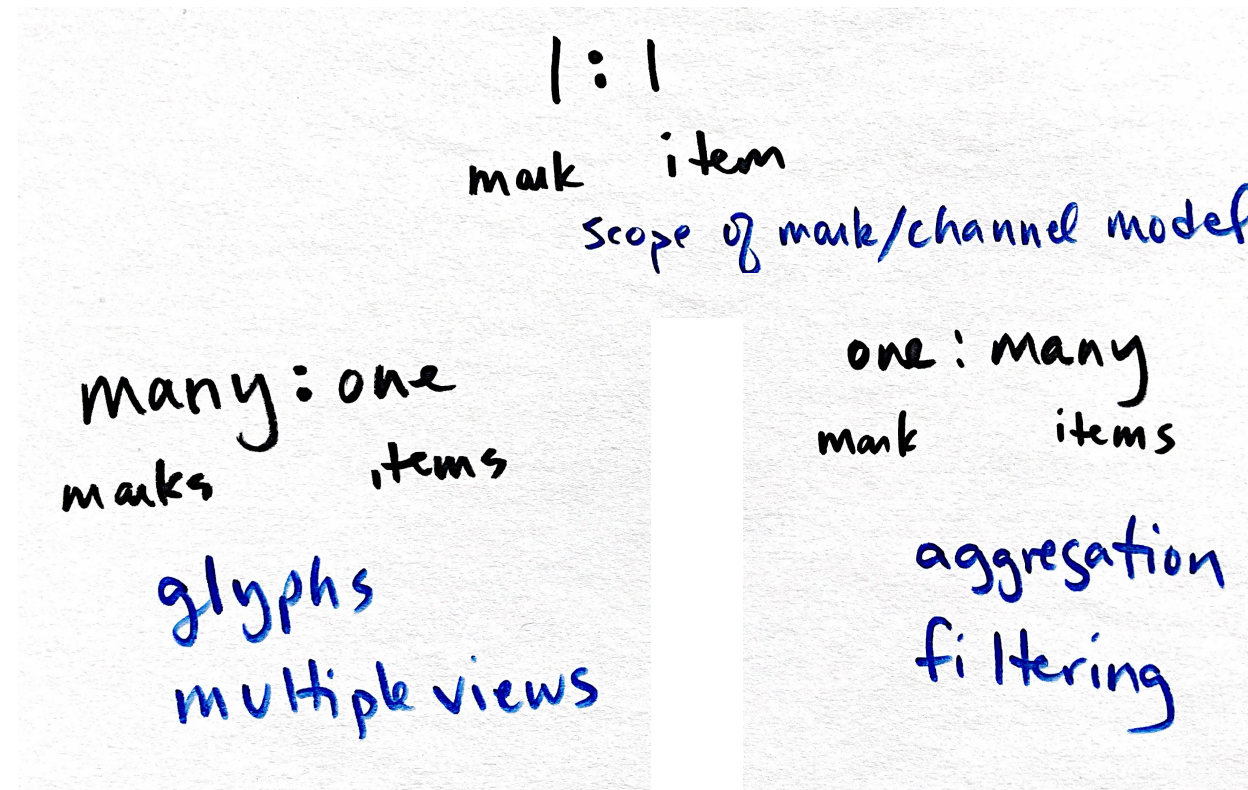 1 : 1
mark item
scope of mark/channel model
many : one
marks items
glyphs
multiple views
one : many
mark items
aggregation
filtering